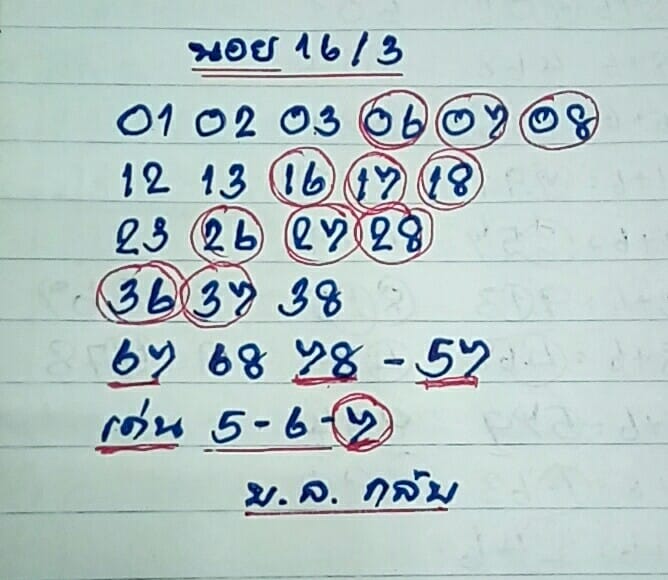 นอย 16/3
01 02 03 06 07 08
12 13 16 17 18
23 26 27 28
36 37 38
67 68 78 - 57
เด่น 5-6-7
บ.ล. กลับ